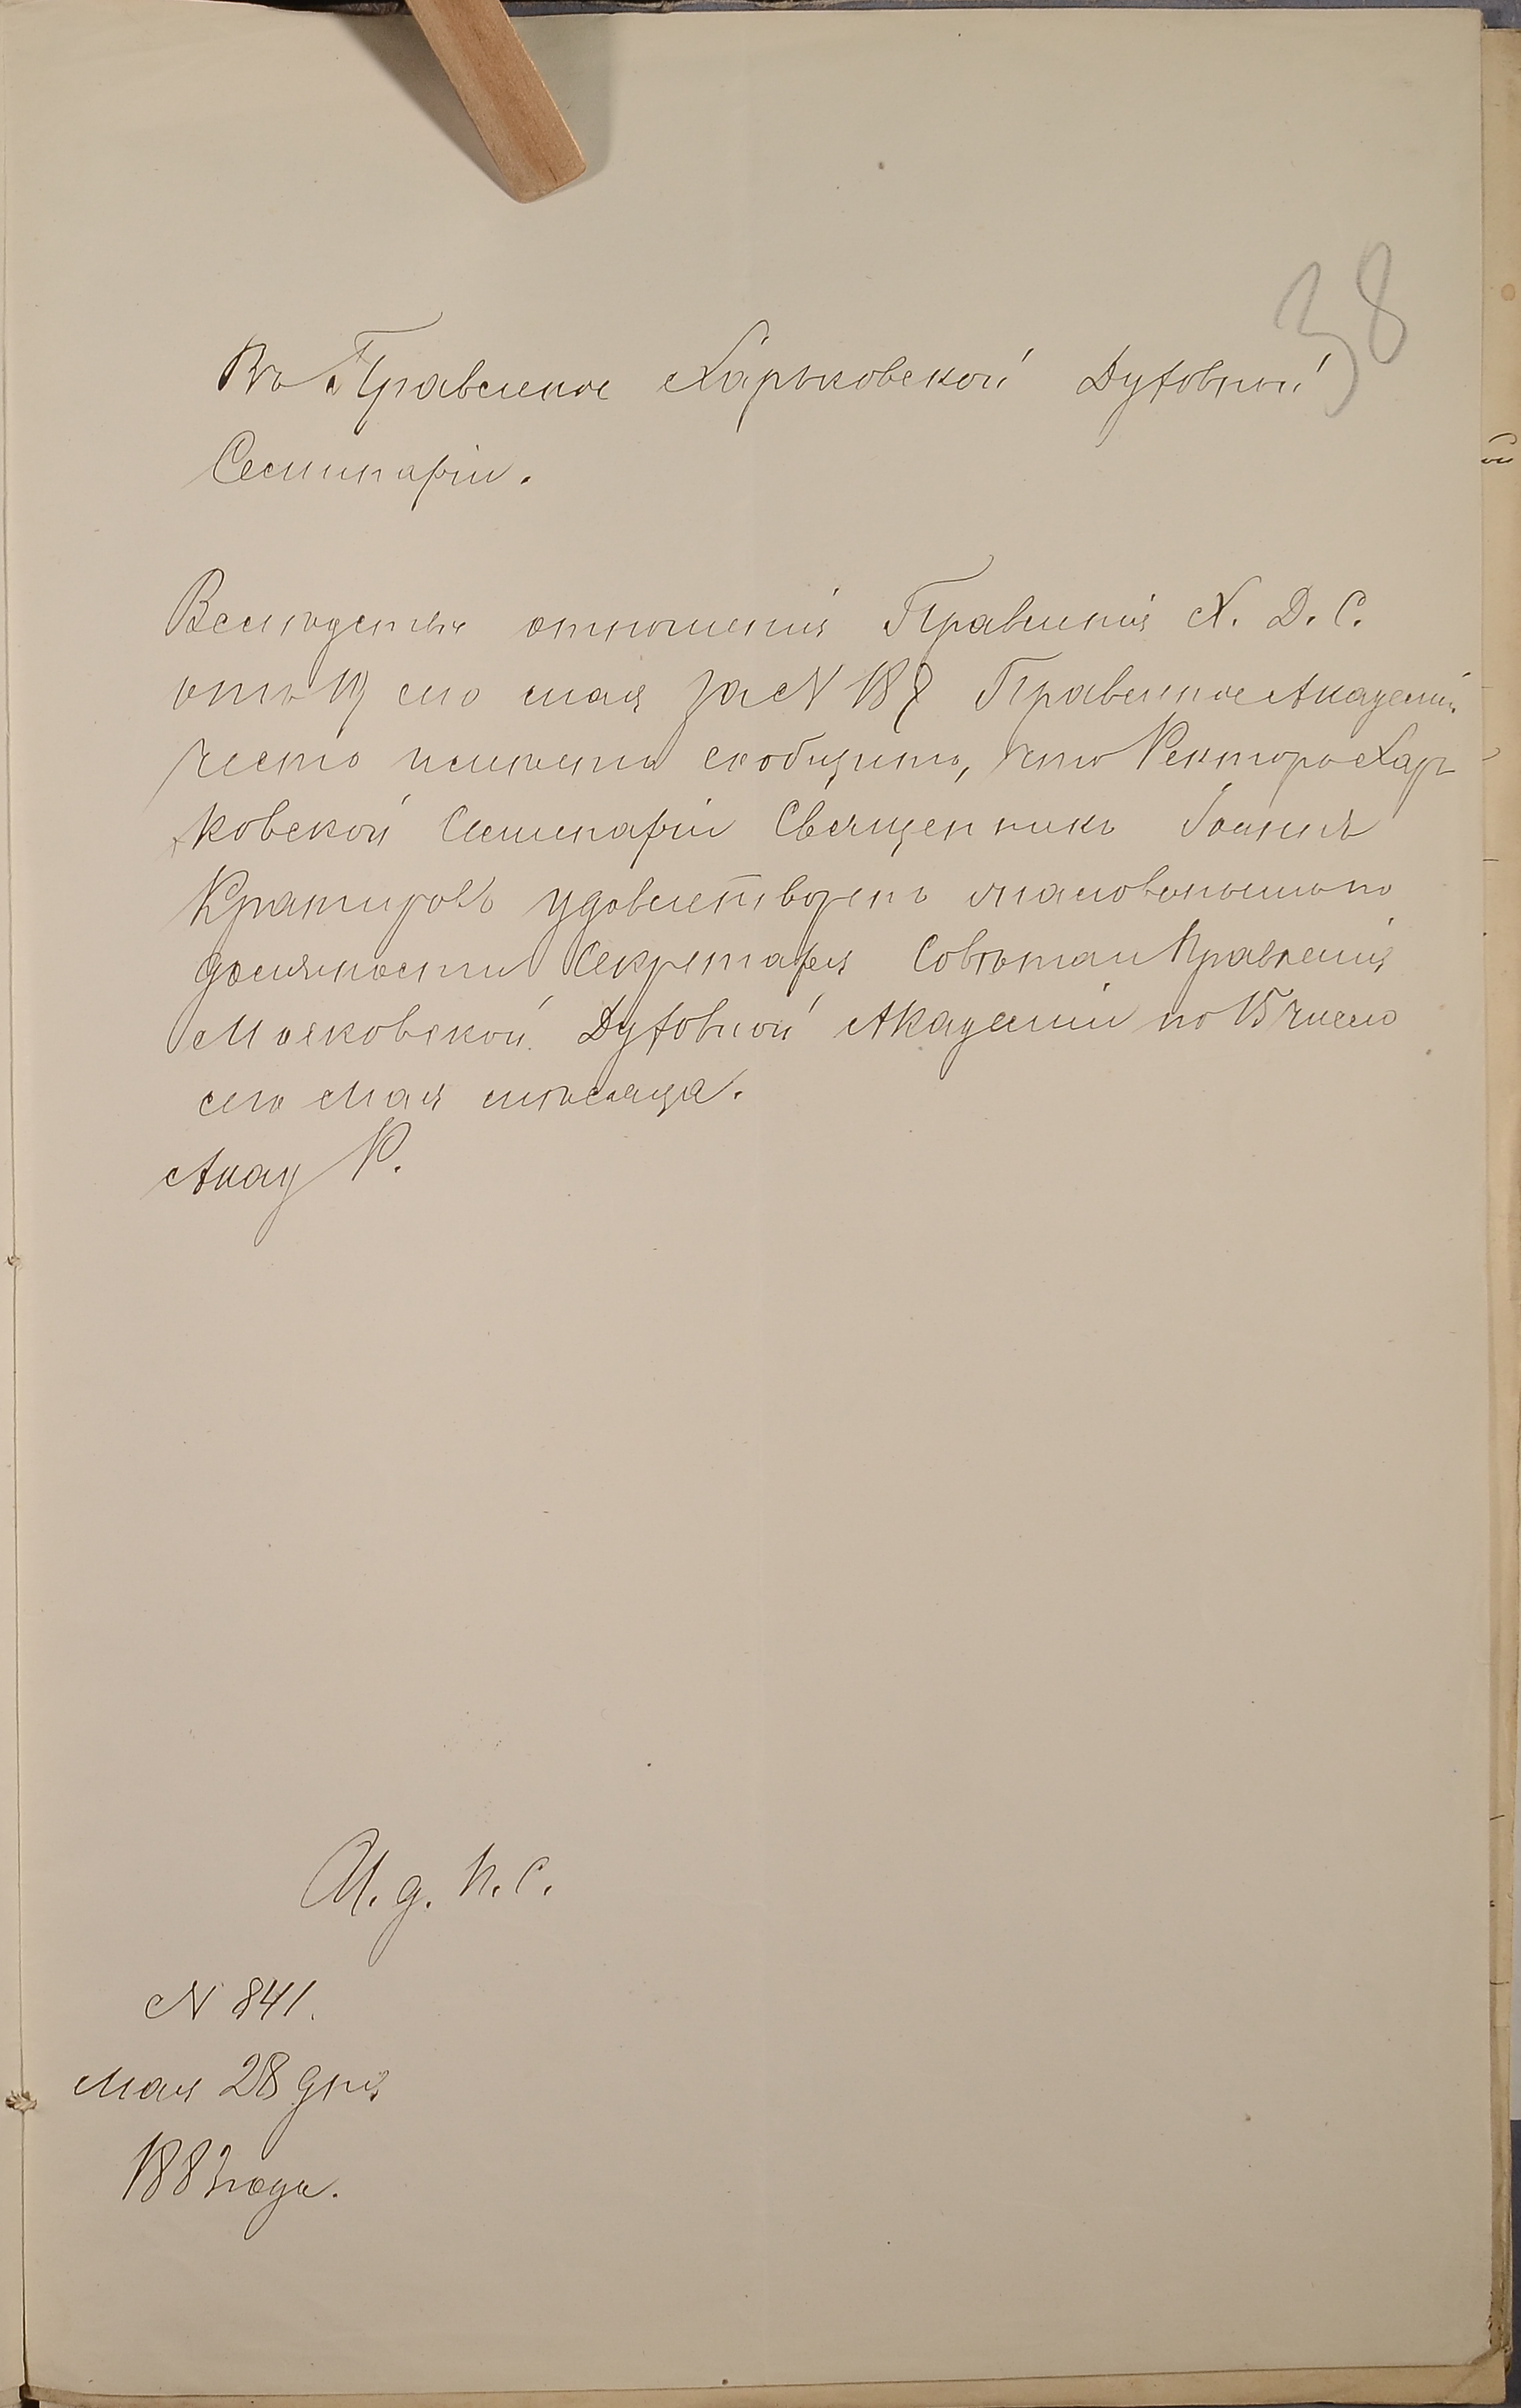 38
Въ Правленіе Харьковской Духовной
Семинаріи.
Вслѣдствіе отношенія Правленія Х. Д. С.
отъ 19 сего мая за N 187 Правленіе Академіи
честь имѣетъ сообщить, что Ректоръ Харь
ковской Семинаріи Священникъ Іоаннъ
Кратировъ удовлетворенъ жалованьемъ по
должности Секретаря Совѣта и Правленія
Московской Духовной Академіи по 15 число
сего Мая мѣсяца.
Акад Р.
И. д. П. С.
N 841.
Мая 28 дня
1883 года.